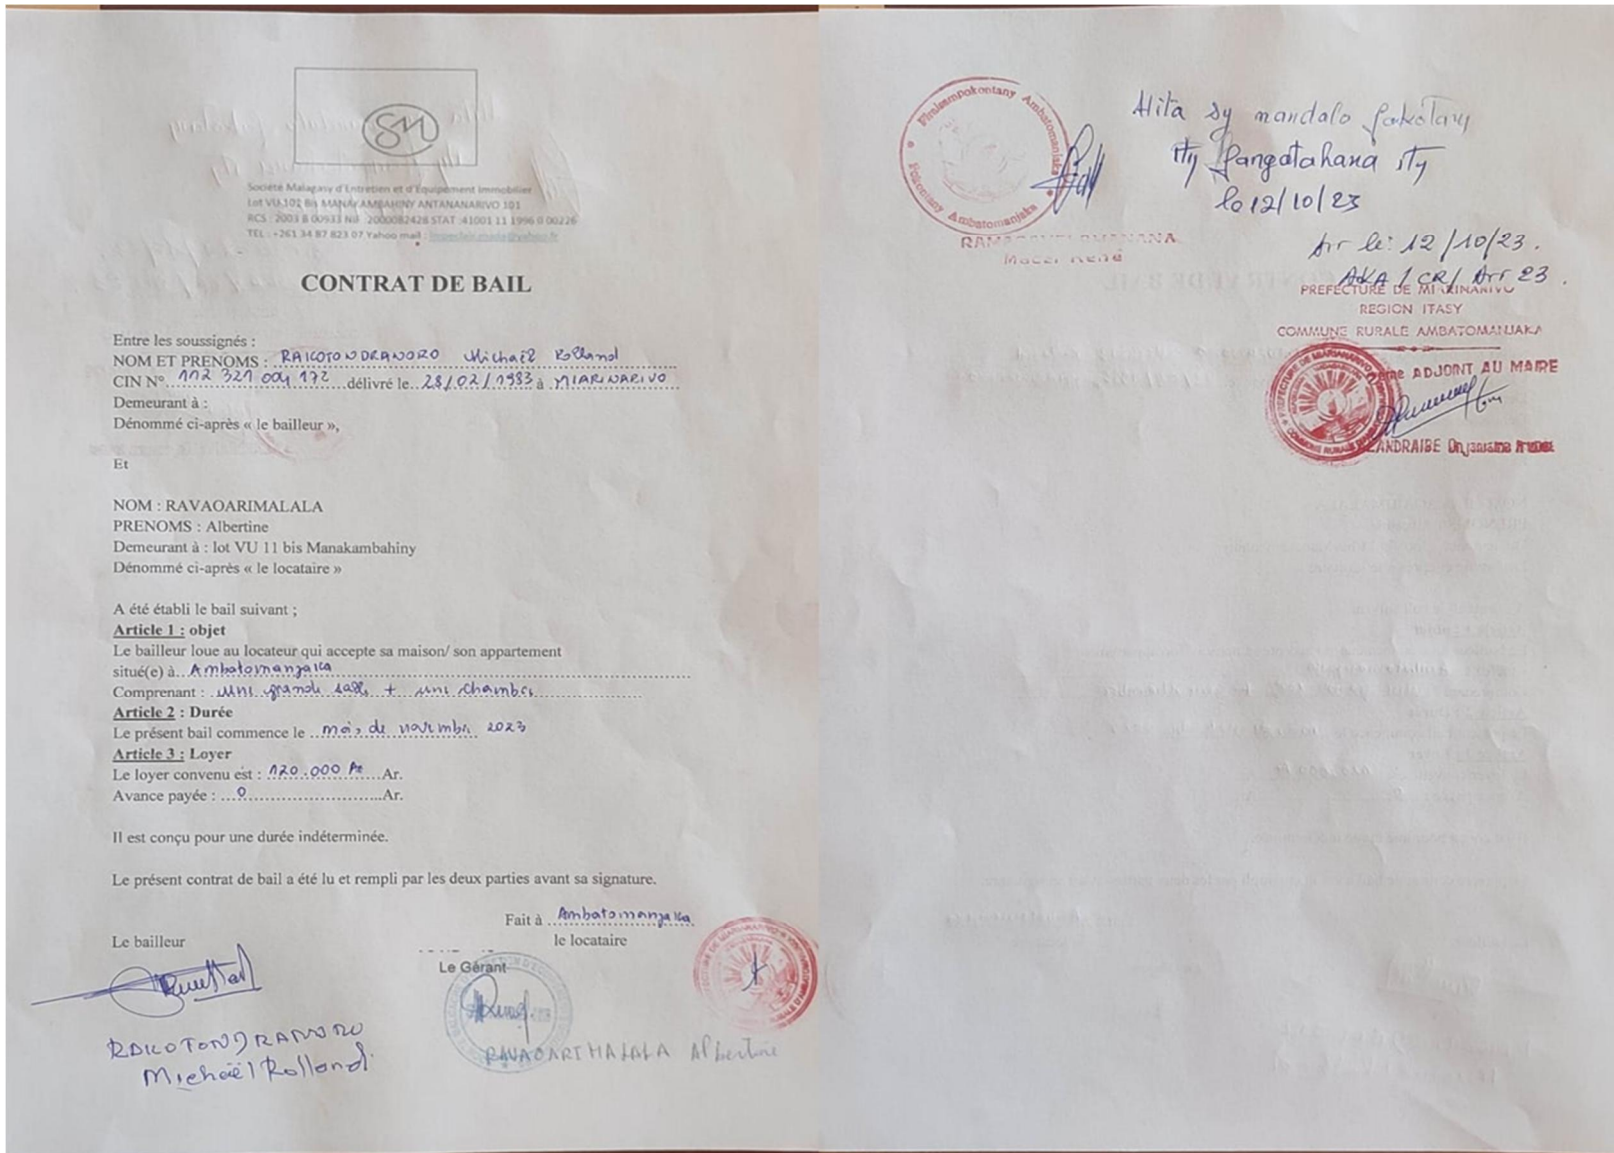 SM
Société Malagasy d'Entretien et d'Equipement Immobilier
Lot VU 101 Bis MANAKAMBAHINY ANTANANARIVO 101
RCS : 2003 B 00933 Nif : 2000082428 STAT :41001 11 1996 0 00226
TEL : +261 34 87 823 07 Yahoo mail :
CONTRAT DE BAIL
Entre les soussignés :
NOM ET PRENOMS : RAKOTONDRANORO Michaël Rolland
CIN N° 112 321 004 172 délivré le 28/02/1983 à MIARINARIVO
Demeurant à :
Dénommé ci-après « le bailleur »,
Et
NOM : RAVAOARIMALALA
PRENOMS : Albertine
Demeurant à : lot VU 11 bis Manakambahiny
Dénommé ci-après « le locataire »
A été établi le bail suivant ;
Article 1 : objet
Le bailleur loue au locateur qui accepte sa maison/ son appartement
situé(e) à Ambatomanjaka
Comprenant : une grande salle + une chambre
Article 2 : Durée
Le présent bail commence le mois de novembre 2023
Article 3 : Loyer
Le loyer convenu est : 120.000 Ar Ar.
Avance payée : 0 Ar.
Il est conçu pour une durée indéterminée.
Le présent contrat de bail a été lu et rempli par les deux parties avant sa signature.
Fait à Ambatomanjaka
Le bailleur
le locataire
Le Gérant
RAKOTONDRANORO
Michaël Rolland
RAVAOARIMALALA Albertine
Fokontany Ambatomanjaka
Hita sy mandalo fokotany
ity fangatahana ity
le 12/10/23
Arr le : 12/10/23.
AKA / CR / Arr 23.
PREFECTURE DE MIARINARIVO
REGION ITASY
COMMUNE RURALE AMBATOMANJAKA
ADJOINT AU MAIRE